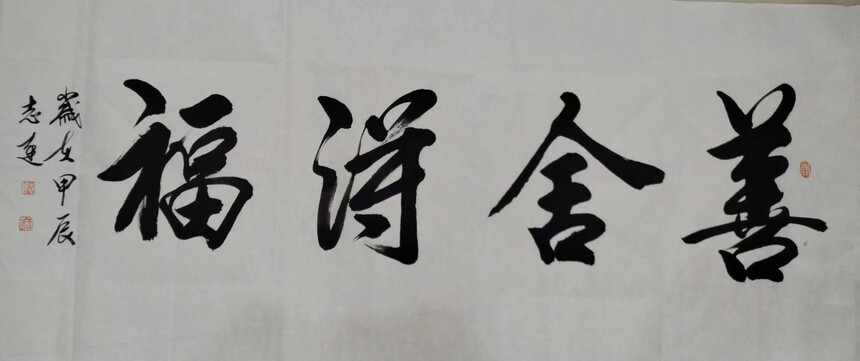 善舍得福
歲在甲辰
志连